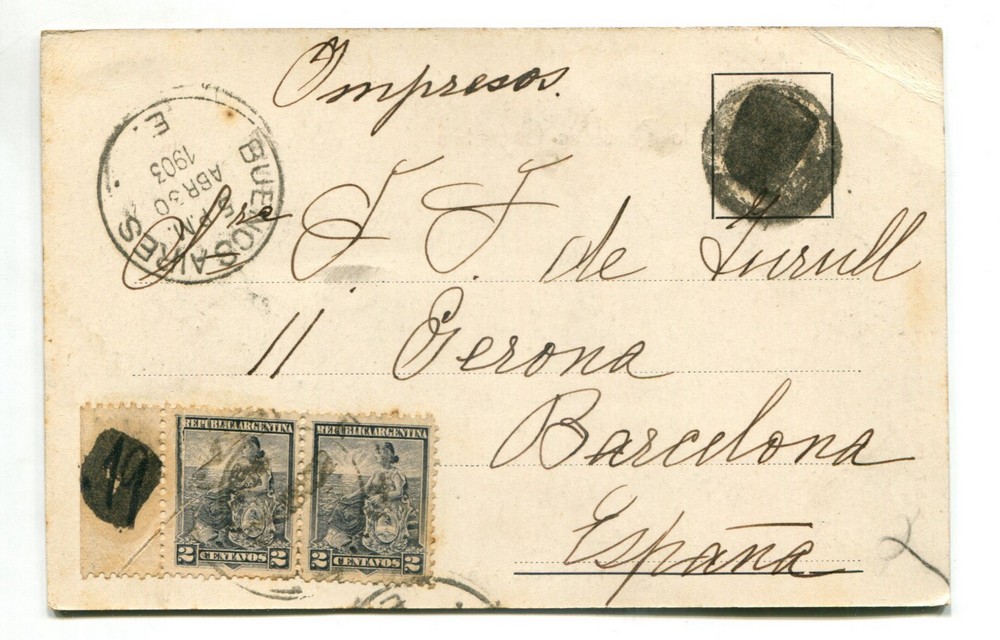 Impresos.
BUENOS AIRES
E.
1903
ABR 30
5 P.M.
Sra F. F. de Turull
11 Gerona
Barcelona
España
REPUBLICA ARGENTINA
2 CENTAVOS 2
REPUBLICA ARGENTINA
2 CENTAVOS 2